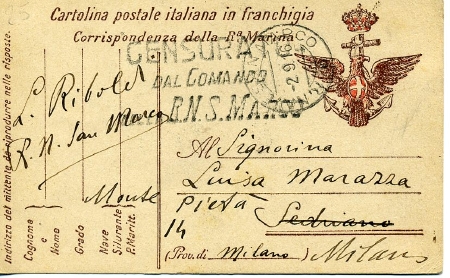 Cartolina postale italiana in franchigia
Corrispondenza della Rª Marina
CENSURATO
DAL COMANDO
R.N.S. MARCO
L. Ribolet
R. N. San Marco
Al Signorina
Luisa Marazza
Monte Pietà
14
Sedriano
(Prov. di Milano) Milano
Indirizzo del mittente da riprodurre nelle risposte.
Cognome e Nome
Grado
Nave
Silurante
P. Maritt.